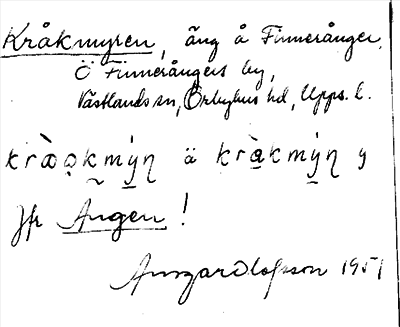 Kråkmyren, äng å Finnerånger,
Ö Finnerångers by,
Västlands sn, Örbyhus hd, Upps. l.
kràǫk̰mý̠ƞ ä krà̠kmý̠ƞ y
Jfr Ängen!
Ansgar Olofsson 1951